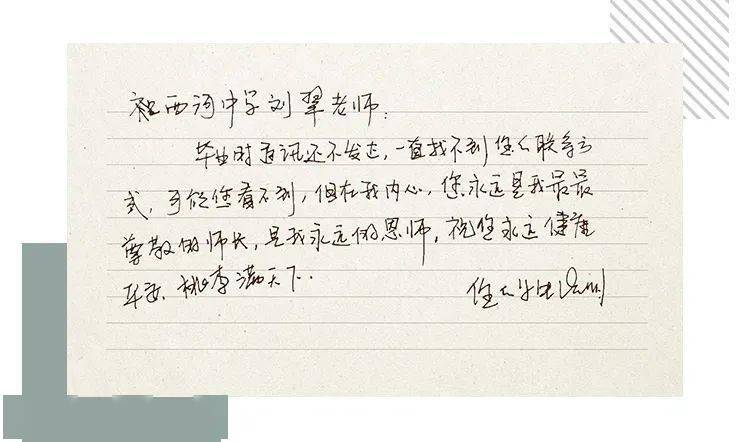 祝西河中学刘翠老师:
毕业时通讯还不发达,一直找不到您的联系方
式,可能您看不到,但在我内心,您永远是我最最
尊敬的师长,是我永远的恩师,祝您永远健康
平安、桃李满天下.
您的学生